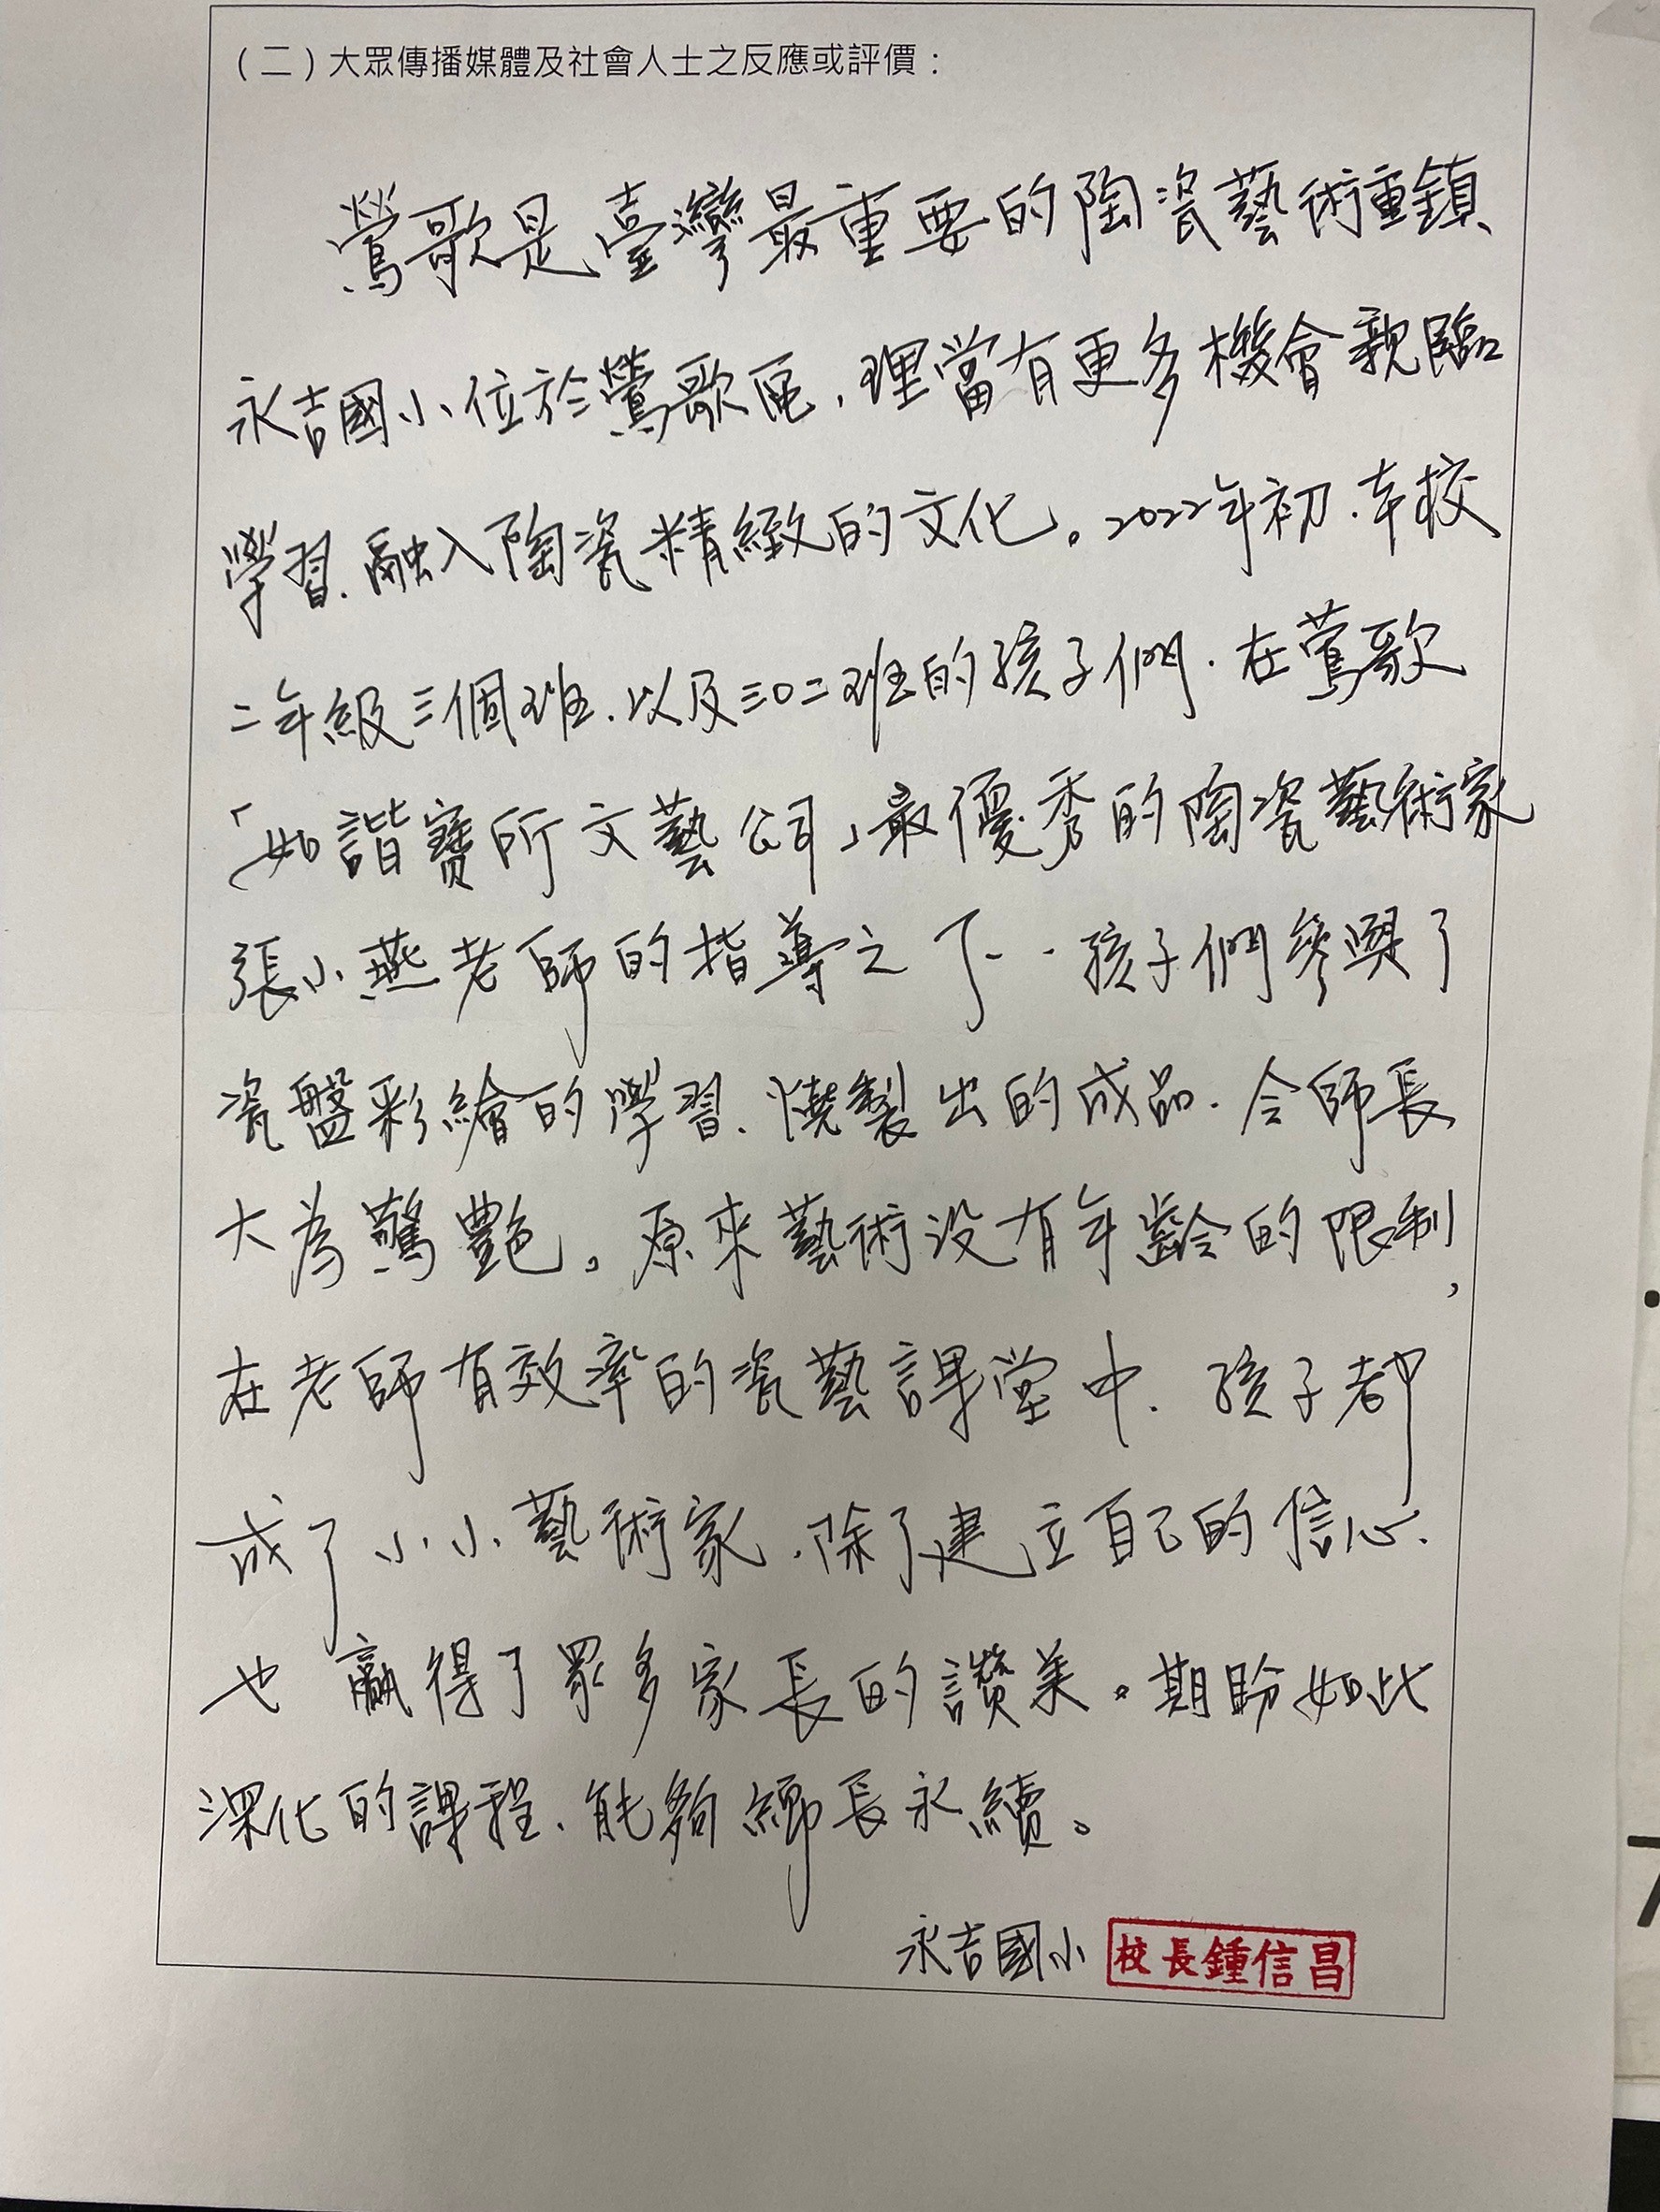 （二）大眾傳播媒體及社會人士之反應或評價：
鶯歌是臺灣最重要的陶瓷藝術重鎮、
永吉國小位於鶯歌區，理當有更多機會親臨
學習、融入陶瓷精緻的文化。2022年初、本校
二年級三個班、以及三〇二班的孩子們、在鶯歌
「如諧寶所文藝公司」最優秀的陶瓷藝術家
張小燕老師的指導之下、孩子們參與了
瓷盤彩繪的學習、燒製出的成品、令師長
大為驚艷。原來藝術沒有年齡的限制，
在老師有效率的瓷藝課堂中、孩子都
成了小小藝術家、除了建立自己的信心、
也贏得了眾多家長的讚美。期盼如此
深化的課程、能夠綿長永續。
永吉國小 校長鍾信昌
7